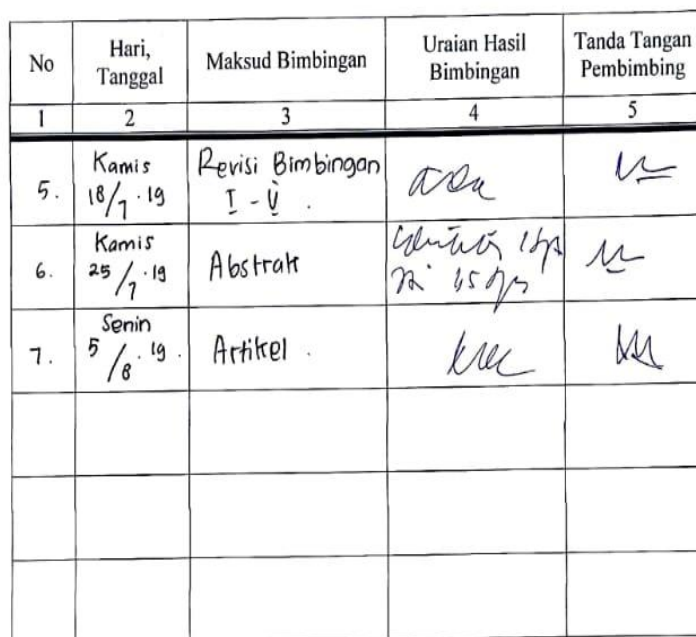 No
Hari,
Tanggal
Maksud Bimbingan
Uraian Hasil
Bimbingan
Tanda Tangan
Pembimbing
1
2
3
4
5
5.
Kamis
18/7.19
Revisi Bimbingan
I - V.
6.
Kamis
25/7.19
Abstrak
7.
Senin
5/8.19.
Artikel.